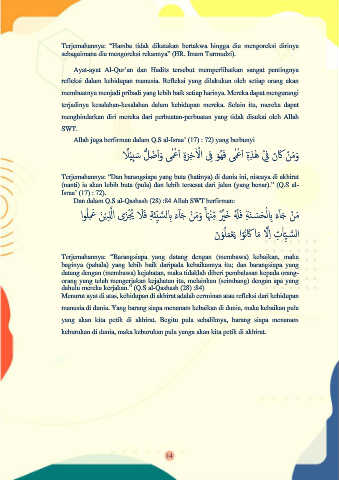 Terjemahannya: "Hamba tidak dikatakan bertakwa hingga dia mengoreksi dirinya
sebagaimana dia mengoreksi rekannya" (HR. Imam Turmudzi).
Ayat-ayat Al-Qur'an dan Hadits tersebut memperlihatkan sangat pentingnya
refleksi dalam kehidupan manusia. Refleksi yang dilakukan oleh setiap orang akan
membuatnya menjadi pribadi yang lebih baik setiap harinya. Mereka dapat mengurangi
terjadinya kesalahan-kesalahan dalam kehidupan mereka. Selain itu, mereka dapat
menghindarkan diri mereka dari perbuatan-perbuatan yang tidak disukai oleh Allah
SWT.
Allah juga berfirman dalam Q.S al-Isra' (17) : 72) yang berbunyi
وَمَنْ كَانَ فِيْ هٰذِهٖٓ اَعْمٰى فَهُوَ فِى الْاٰخِرَةِ اَعْمٰى وَاَضَلُّ سَبِيْلًا
Terjemahannya: "Dan barangsiapa yang buta (hatinya) di dunia ini, niscaya di akhirat
(nanti) ia akan lebih buta (pula) dan lebih tersesat dari jalan (yang benar)." (Q.S al-
Isra' (17) : 72).
Dan dalam Q.S al-Qashash (28) :84 Allah SWT berfirman:
مَنْ جَاۤءَ بِالْحَسَنَةِ فَلَهٗ خَيْرٌ مِّنْهَاۚ وَمَنْ جَاۤءَ بِالسَّيِّئَةِ فَلَا يُجْزَى الَّذِيْنَ عَمِلُوا
السَّيِّاٰتِ اِلَّا مَا كَانُوْا يَعْمَلُوْنَ
Terjemahannya: "Barangsiapa yang datang dengan (membawa) kebaikan, maka
baginya (pahala) yang lebih baik daripada kebaikannya itu; dan barangsiapa yang
datang dengan (membawa) kejahatan, maka tidaklah diberi pembalasan kepada orang-
orang yang telah mengerjakan kejahatan itu, melainkan (seimbang) dengan apa yang
dahulu mereka kerjakan." (Q.S al-Qashash (28) :84)
Menurut ayat di atas, kehidupan di akhirat adalah cerminan atau refleksi dari kehidupan
manusia di dunia. Yang barang siapa menanam kebaikan di dunia, maka kebaikan pula
yang akan kita petik di akhirat. Begitu pula sebaliknya, barang siapa menanam
keburukan di dunia, maka keburukan pula yanga akan kita petik di akhirat.
14